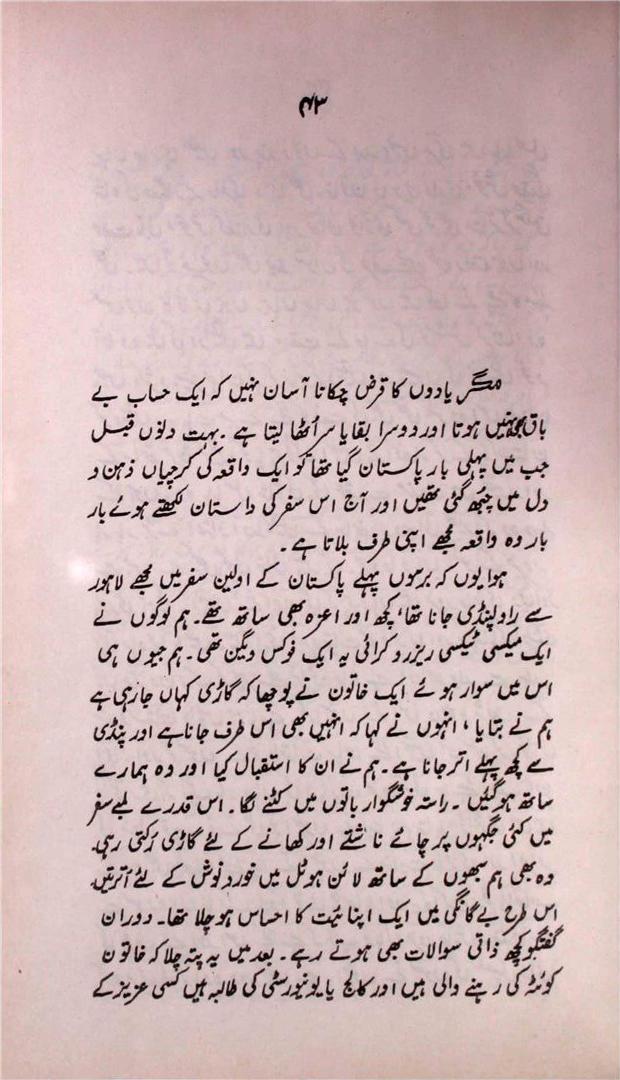 ۴۳
مگر یادوں کا قرض چکانا آسان نہیں کہ ایک حساب بے
باق نہیں ہوتا اور دوسرا بقایا سر اُٹھا لیتا ہے ۔ بہت دنوں قبل
جب میں پہلی بار پاکستان گیا تھا تو ایک واقعہ کی کرچیاں ذہن و
دل میں چبھ گئی تھیں اور آج اس سفر کی داستان لکھتے ہوئے بار
بار وہ واقعہ مجھے اپنی طرف بلاتا ہے ۔
ہوا یوں کہ برسوں پہلے پاکستان کے اولین سفر میں مجھے لاہور
سے راولپنڈی جانا تھا، کچھ اور اعزہ بھی ساتھ تھے۔ ہم لوگوں نے
ایک میکسی ٹیکسی ریزرو کرائی یہ ایک فوکس ویگن تھی۔ ہم جیوں ہی
اس میں سوار ہوئے ایک خاتون نے پوچھا کہ گاڑی کہاں جا رہی ہے
ہم نے بتایا ، انہوں نے کہا کہ انہیں بھی اس طرف جانا ہے اور پنڈی
سے کچھ پہلے اتر جانا ہے۔ ہم نے ان کا استقبال کیا اور وہ ہمارے
ساتھ ہو گئیں ۔ راستہ خوشگوار باتوں میں کٹنے لگا۔ اس قدرے لمبے سفر
میں کئی جگہوں پر چائے ناشتے اور کھانے کے لئے گاڑی رُکتی رہی۔
وہ بھی ہم سبھوں کے ساتھ لائن ہوٹل میں خورد نوش کے لئے اُترتیں۔
اس طرح بے گانگی میں ایک اپنائیت کا احساس ہو چلا تھا۔ دوران
گفتگو کچھ ذاتی سوالات بھی ہوتے رہے ۔ بعد میں یہ پتہ چلا کہ خاتون
کوئٹہ کی رہنے والی ہیں اور کالج یا یونیورسٹی کی طالبہ ہیں کسی عزیز کے